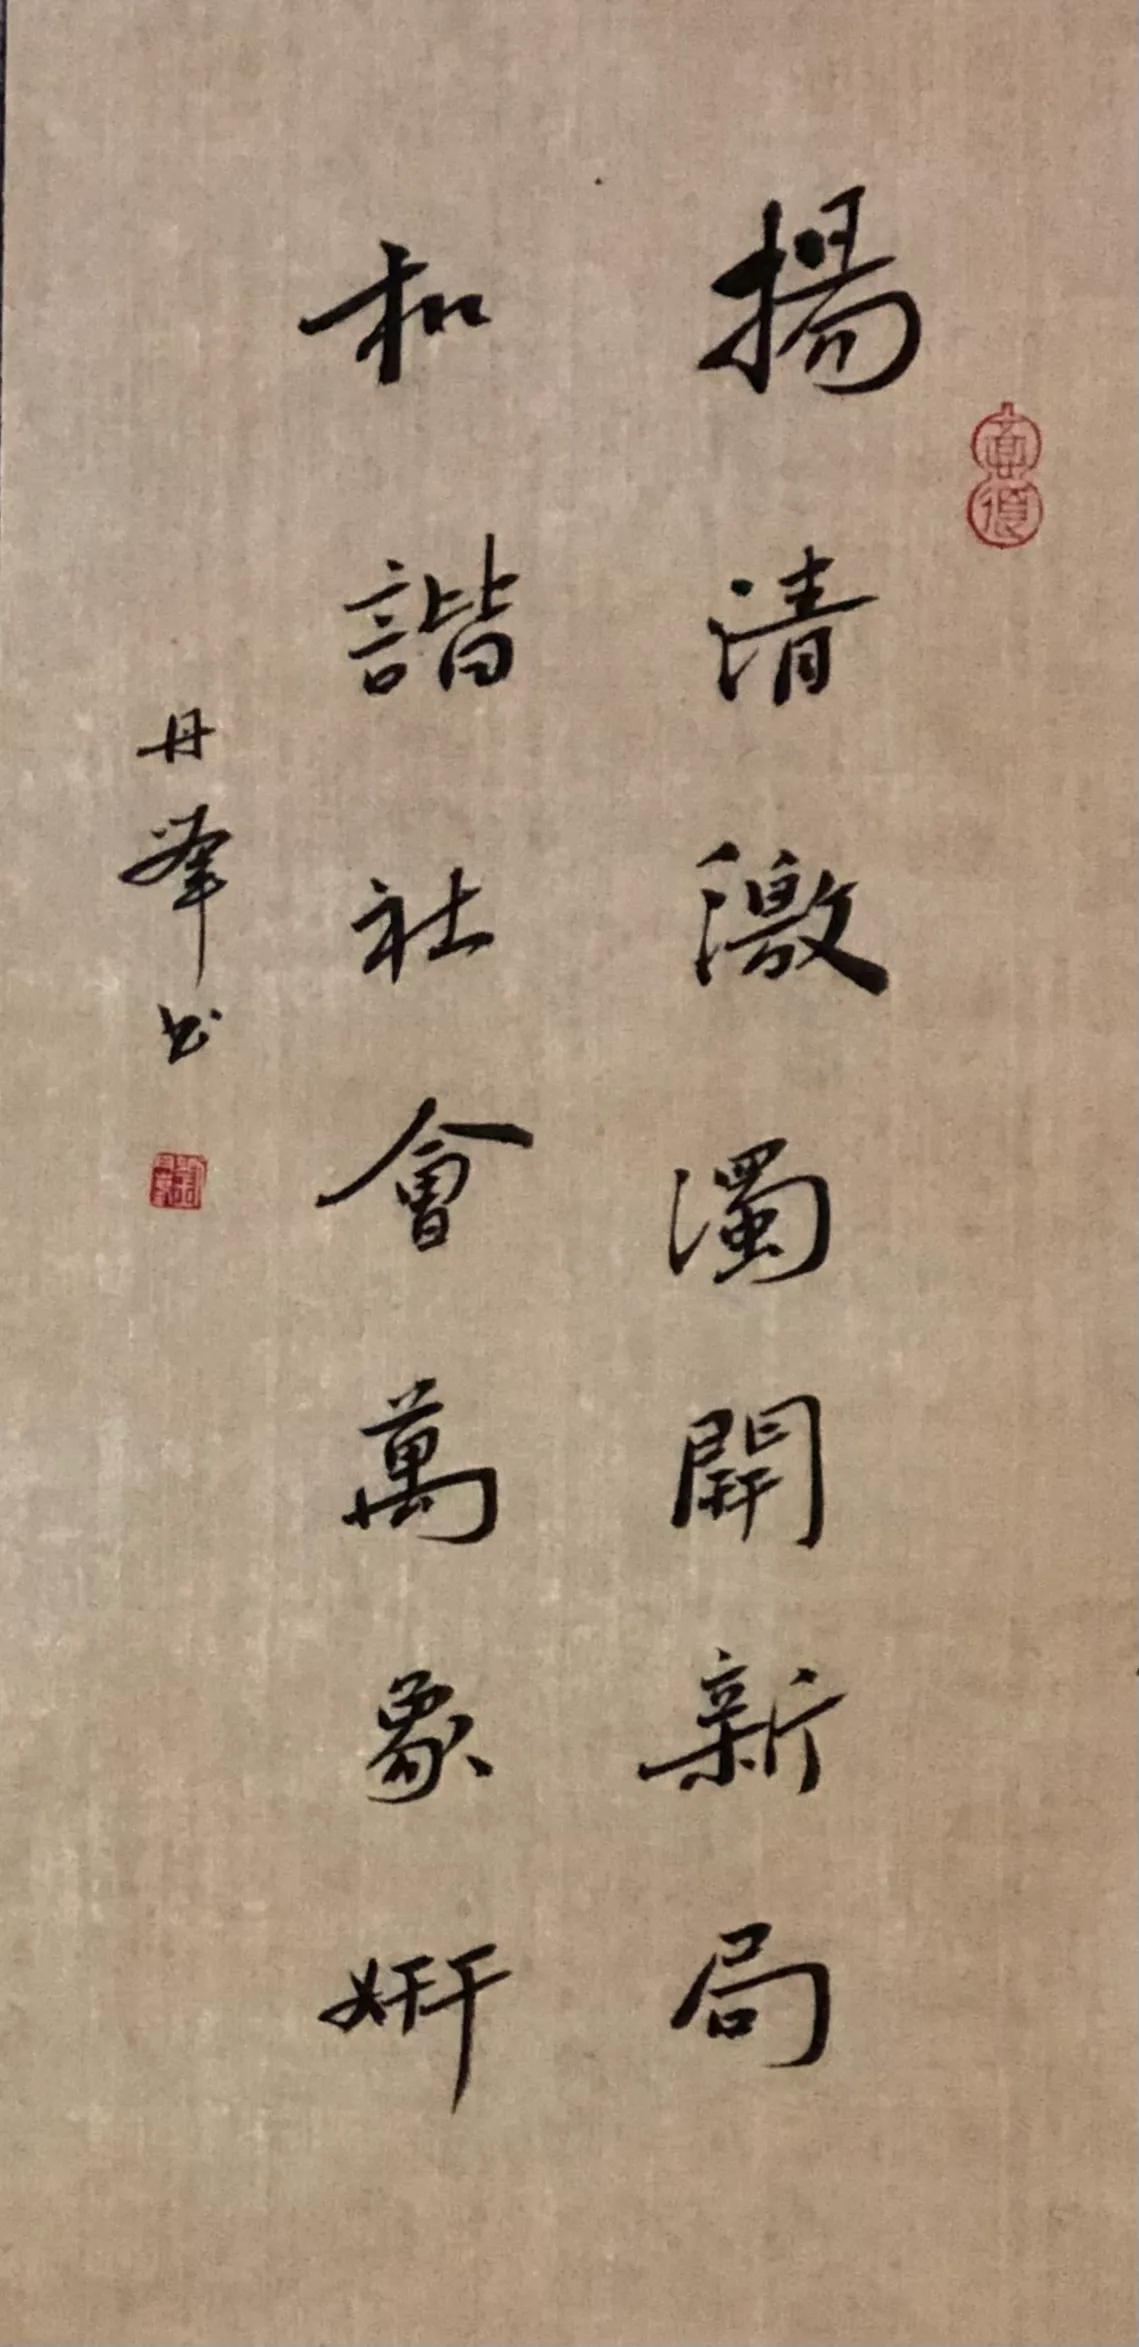 揚清激濁開新局
和諧社會萬象妍
丹峰书